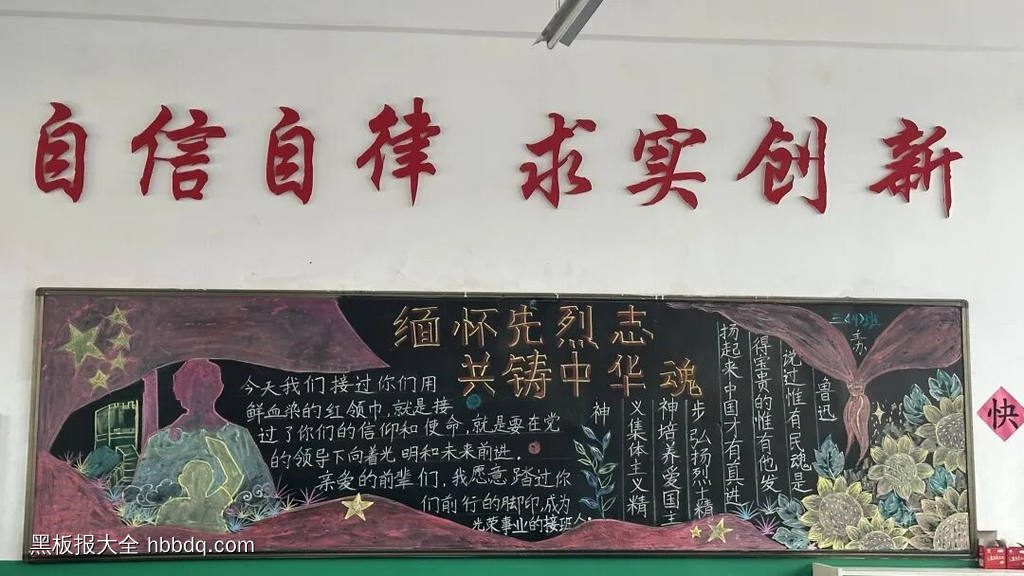 自信自律 求实创新
缅怀先烈志
共铸中华魂
今天我们接过你们用
鲜血染的红领巾,就是接
过了你们的信仰和使命,就是要在党
的领导下向着光明和未来前进。
亲爱的前辈们,我愿意踏过你
们前行的脚印,成为
光荣事业的接班人。
二(4)班
鲁迅
说过惟有民魂是
得宝贵的惟有他发
扬起来中国才有真进
步弘扬烈士精
神培养爱国主
义集体主义精
神
快
黑板报大全 hbbdq.com